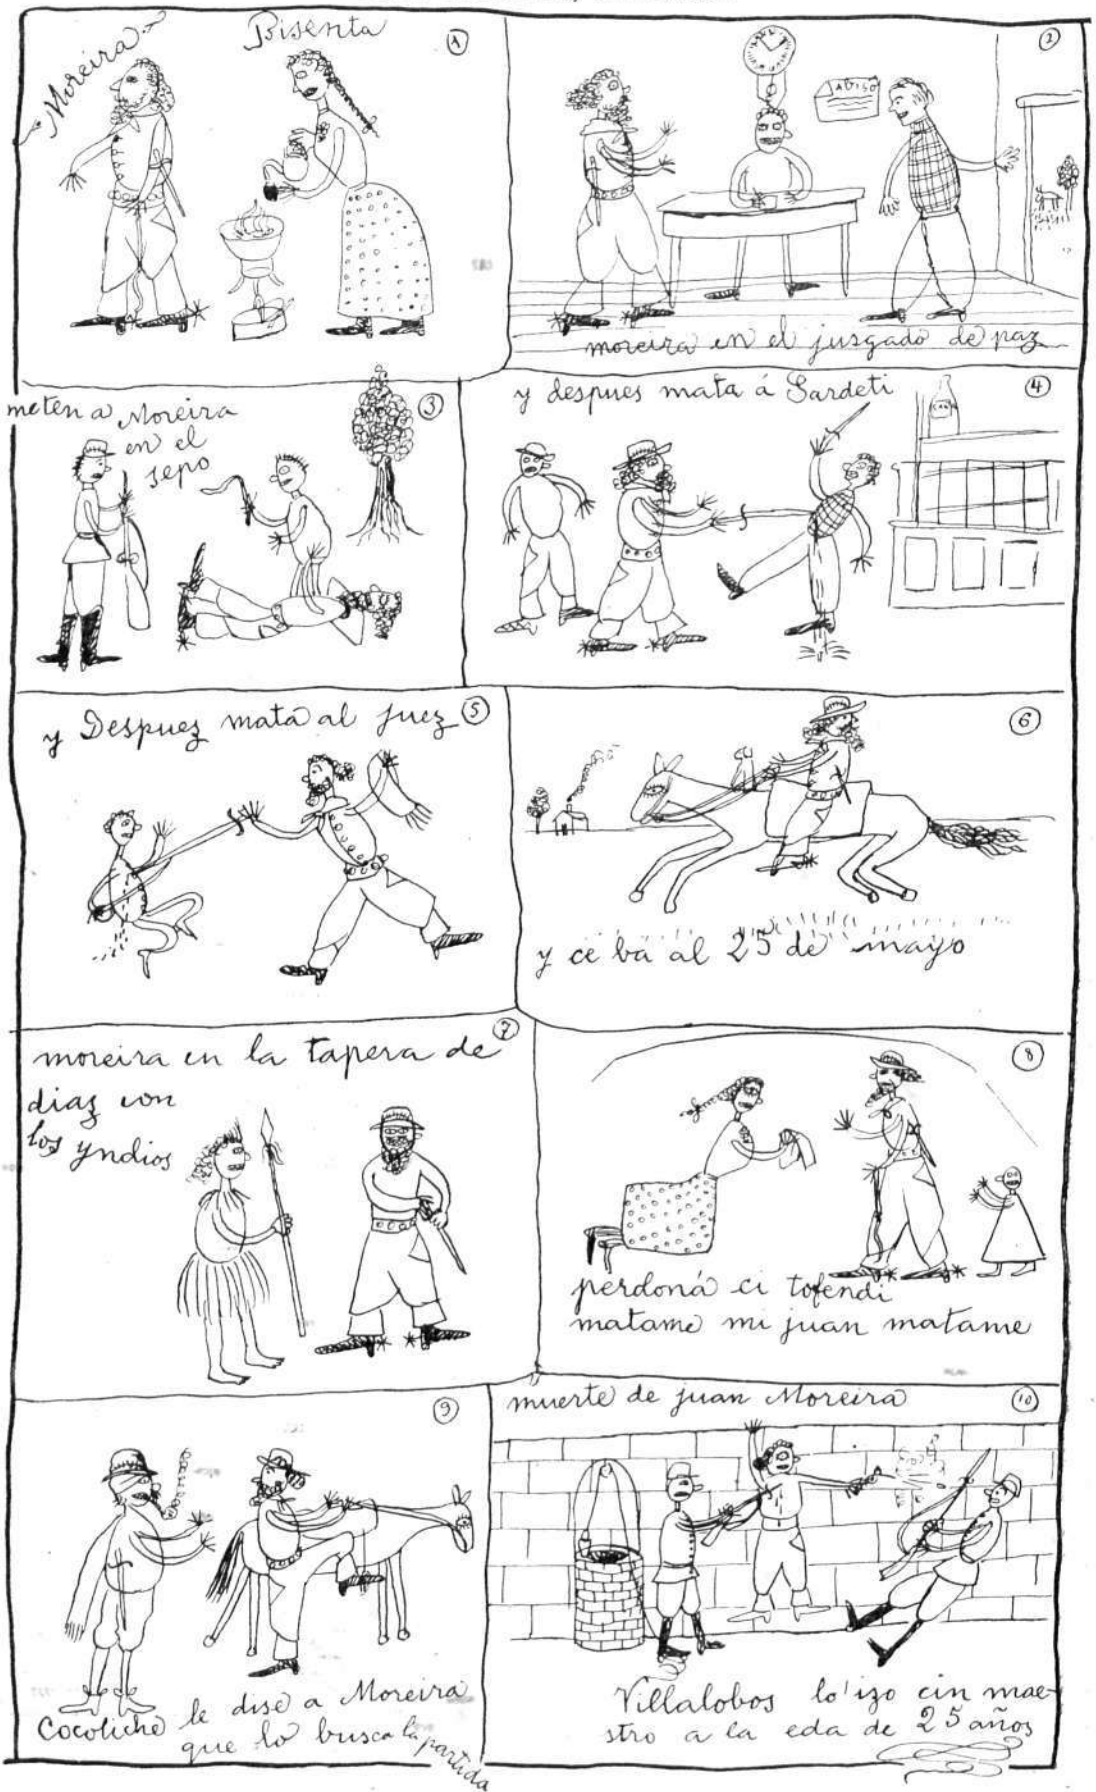 Moreira
Bisenta
1
2
AVISO
moreira en el jusgado de paz
3
meten a Moreira
en el
sepo
4
y despues mata á Sardeti
y Despuez mata al juez
5
6
y ce ba al 25 de mayo
7
moreira en la tapera de
diaz con
los yndios
8
perdoná ci tofendi
matame mi juan matame
9
Cocoliche le dise a Moreira
que lo busca la partida
muerte de juan Moreira
10
Villalobos lo izo cin mae-
stro a la eda de 25 años